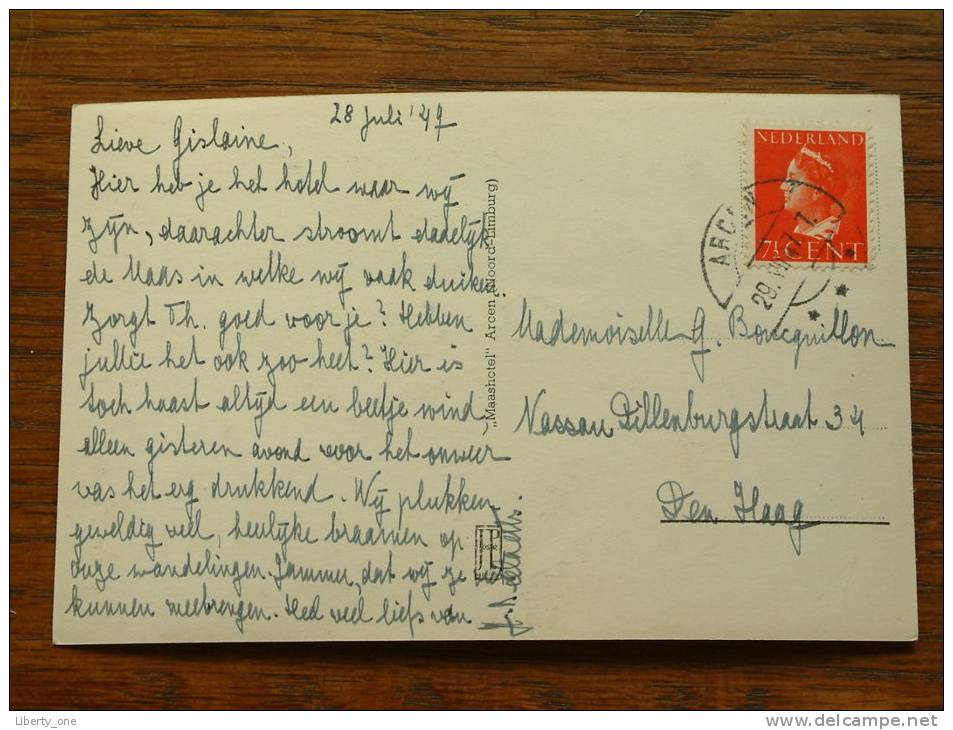 28 Juli '47
Lieve Gislaine,
Hier heb je het hotel waar wij
zijn, daarachter stroomt dadelijk
de Maas in welke wij vaak duiken.
Zorgt Th. goed voor je? Hebben
jullie het ook zoo heet? Hier is
toch haast altijd een beetje wind
alleen gisteren avond voor het onweer
was het erg drukkend. Wij plukken
geweldig veel, heerlijke braamen op
onze wandelingen. Jammer, dat wij ze
kunnen meebrengen. Heel veel liefs van
„Maashotel" Arcen (Noord-Limburg)
NEDERLAND
7½ CENT
ARCEN
29.VII.47-7.
Mademoiselle G. Boucquillon
Nassau Dillenburgstraat 34
Den Haag
Liberty_one
www.delcampe.net